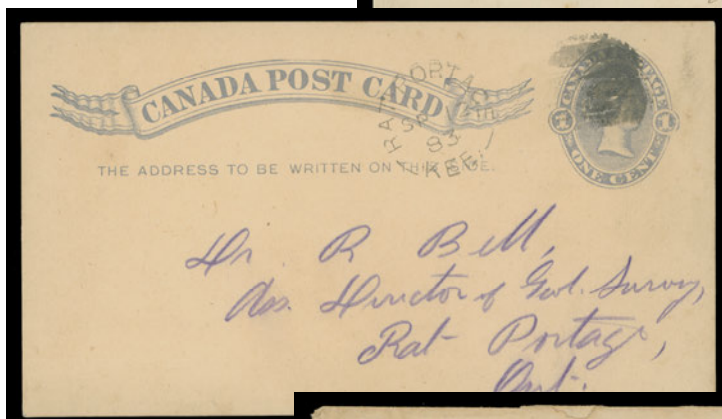 CANADA POST CARD
THE ADDRESS TO BE WRITTEN ON THIS SIDE.
CANADA POSTAGE
ONE CENT
RAT PORTAGE
93
Dr. R Bell,
Ass. Director of Geol. Survey,
Rat Portage,
Ont.